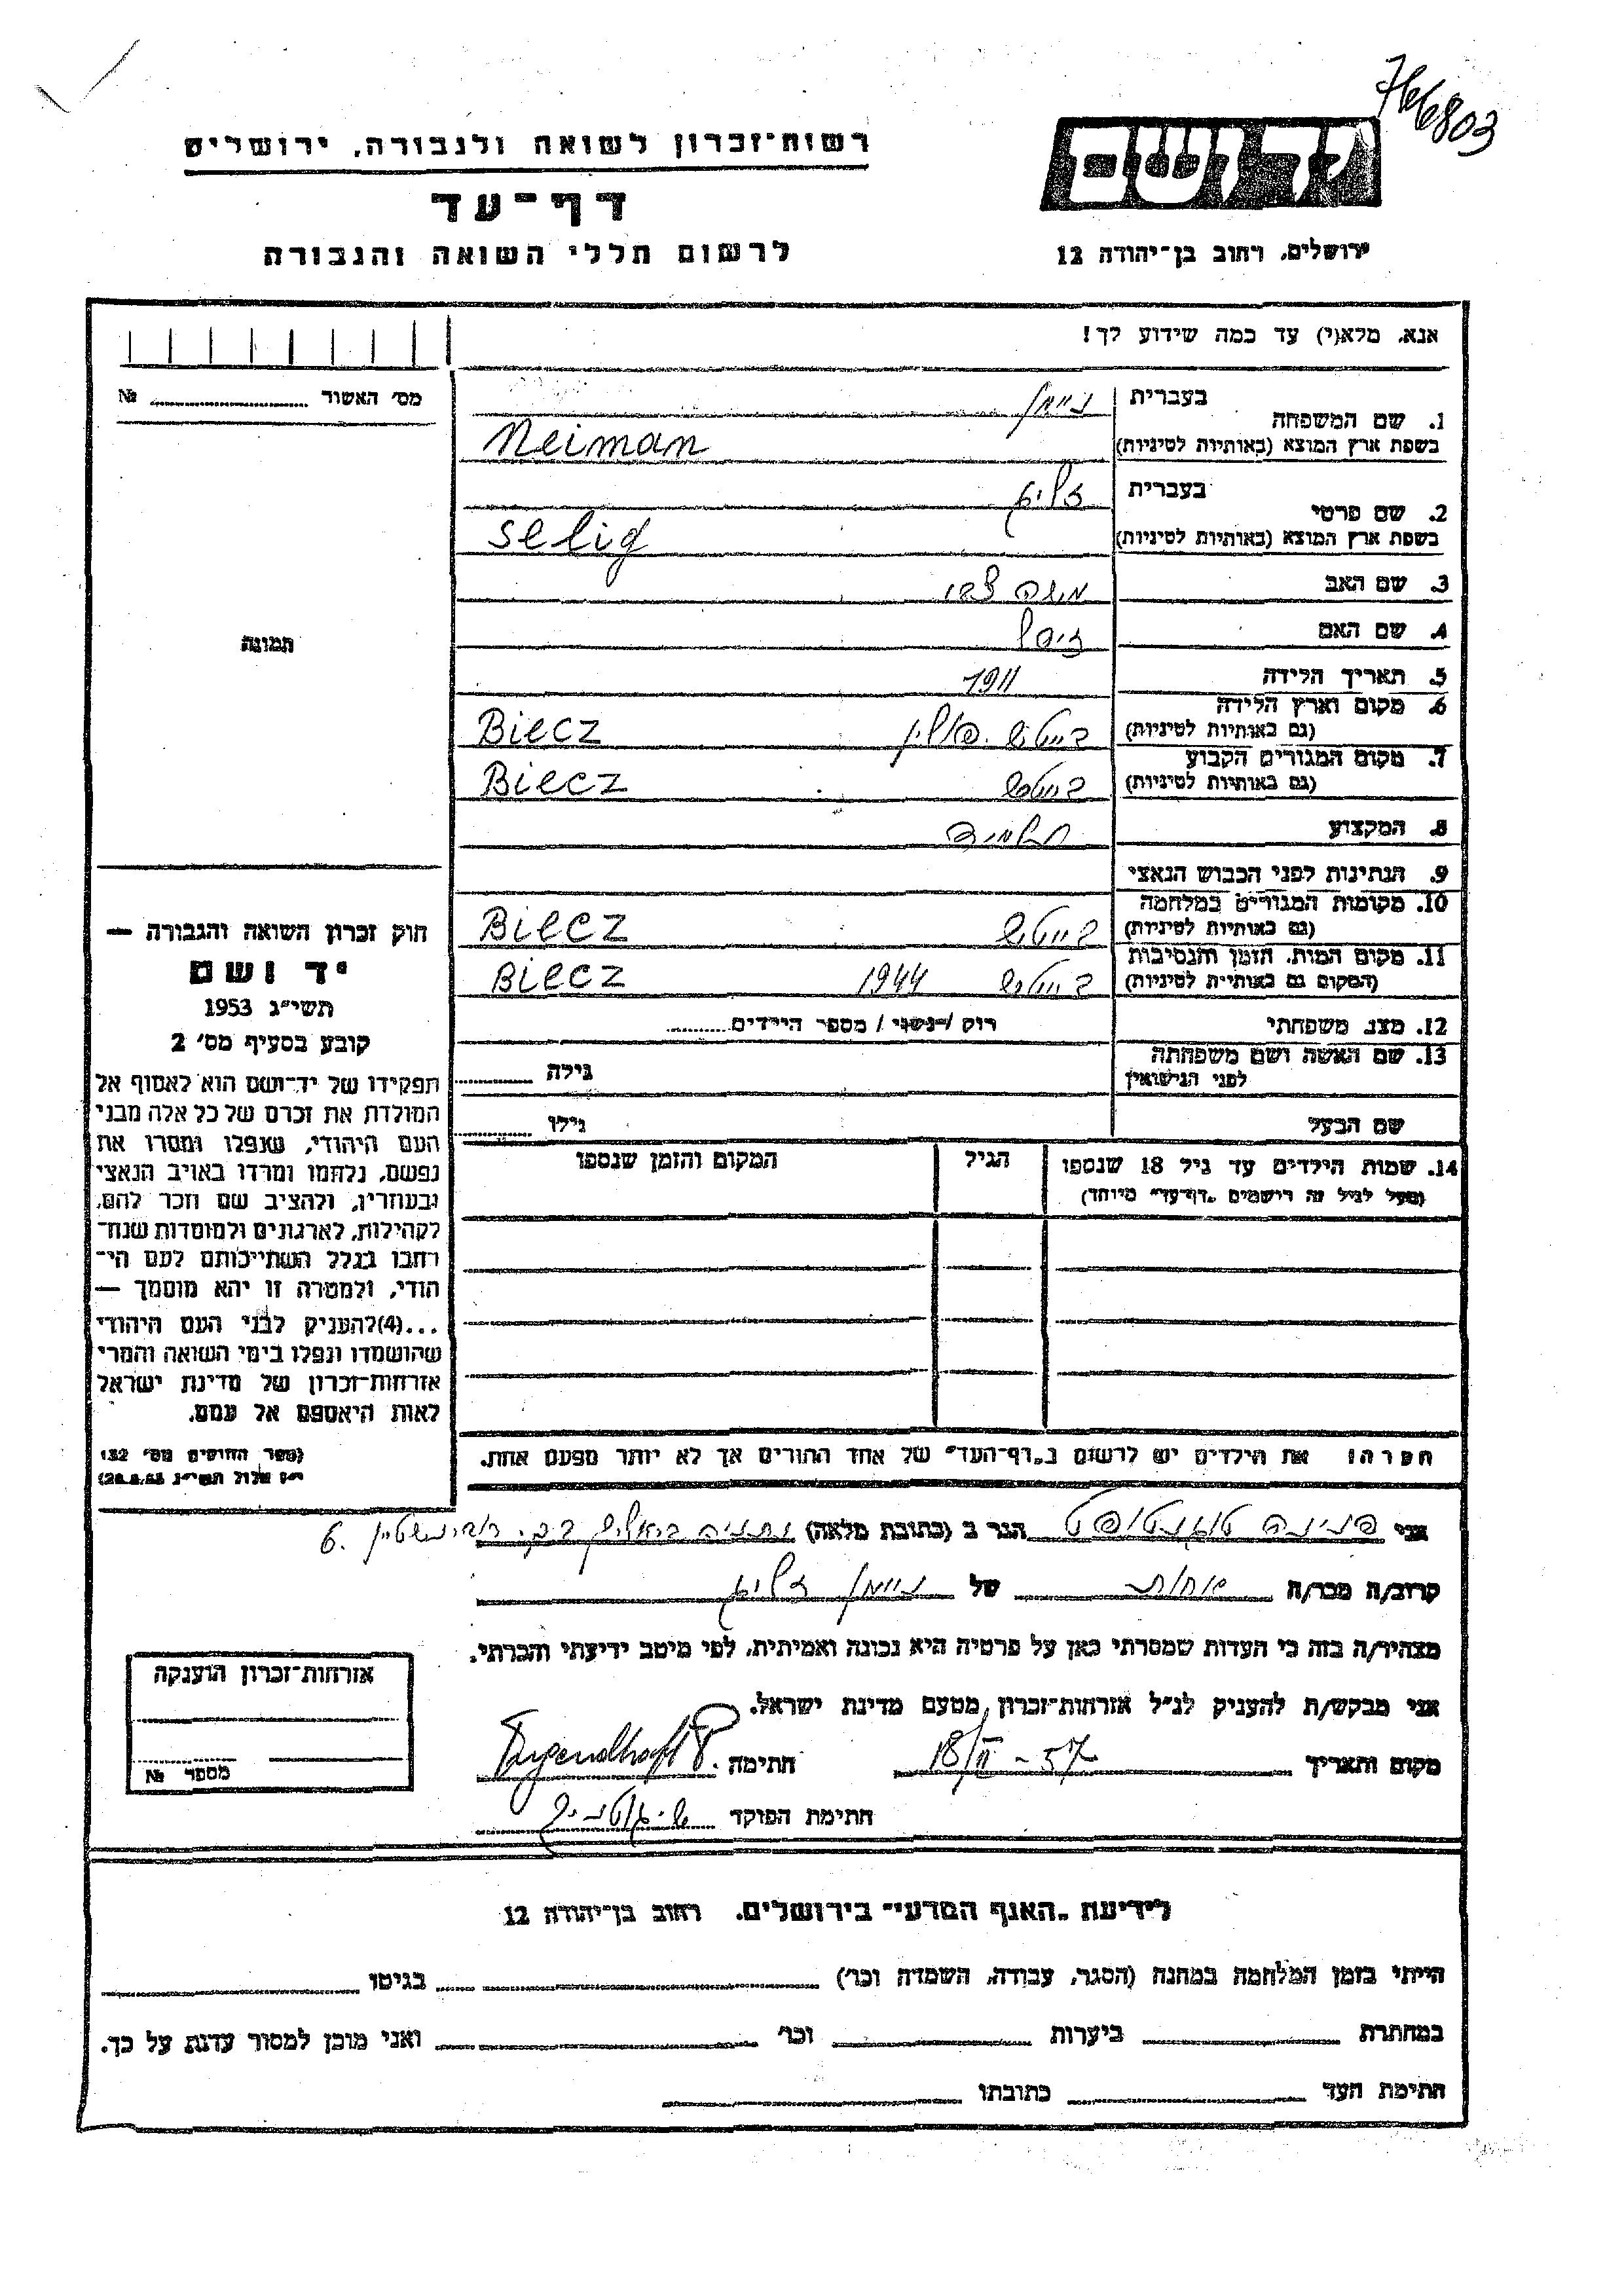 766803
רשות־זכרון לשואה ולגבורה, ירושלים
יד ושם
דף־עד
לרשום חללי השואה והגבורה
ירושלים, רחוב בן־יהודה 12
אנא, מלא(י) עד כמה שידוע לך!
מס׳ האשור ........ №
1. שם המשפחה
בעברית ניימן
בשפת ארץ המוצא (באותיות לטיניות) Neiman
2. שם פרטי
בעברית זליג
בשפת ארץ המוצא (באותיות לטיניות) Selig
3. שם האב משה צבי
4. שם האם
5. תאריך הלידה 1911
6. מקום וארץ הלידה (גם באותיות לטיניות) בייטש. פולין Biecz
7. מקום המגורים הקבוע (גם באותיות לטיניות) בייטש Biecz
8. המקצוע תלמיד
9. הנתינות לפני הכבוש הנאצי
10. מקומות המגורים במלחמה (גם באותיות לטיניות) בייטש Biecz
11. מקום המות, הזמן והנסיבות (המקום גם באותיות לטיניות) בייטש 1944 Biecz
12. מצב משפחתי רווק / נשוי / מספר הילדים........
13. שם האשה ושם משפחתה לפני הנישואין
גילה ........
שם הבעל
גילו ........
14. שמות הילדים עד גיל 18 שנספו
(מעל לגיל זה רישמים „דף־עד״ מיוחד)
הגיל
המקום והזמן שנספו
תמונה
חוק זכרון השואה והגבורה —
יד ושם
תשי״ג 1953
קובע בסעיף מס׳ 2
תפקידו של יד־ושם הוא לאסוף אל
המולדת את זכרם של כל אלה מבני
העם היהודי, שנפלו ומסרו את
נפשם, נלחמו ומרדו באויב הנאצי
ובעוזריו, ולהציב שם וזכר להם,
לקהילות, לארגונים ולמוסדות שנח־
רחבו בגלל השתייכותם לעם הי־
הודי, ולמטרה זו יהא מוסמך —
...(4)להעניק לבני העם היהודי
שהושמדו ונפלו בימי השואה והמרי
אזרחות־זכרון של מדינת ישראל
לאות היאספם אל עמם.
(ספר החוקים מס׳ 132
י״ז אלול תשי״ג 28.8.53)
הערה: את הילדים יש לרשום ב„דף־העד״ של אחד ההורים אך לא יותר מפעם אחת.
אני פנינה טוגנטהפט הגר ב (כתובת מלאה) נתניה ביאליק רובינשטיין 6.
קרוב/ה מכר/ה אחות של ניימן זליג
מצהיר/ה בזה כי העדות שמסרתי כאן על פרטיה היא נכונה ואמיתית, לפי מיטב ידיעתי והכרתי.
אני מבקש/ת להעניק לנ״ל אזרחות־זכרון מטעם מדינת ישראל.
מקום ותאריך 18/II - 57 חתימה Tugendhaft P.
חתימת הפוקד
אזרחות־זכרון הוענקה
מספר №
לידיעת „האגף המדעי״ בירושלים, רחוב בן־יהודה 12
הייתי בזמן המלחמה במחנה (הסגר, עבודה, השמדה וכו׳) ........ בגיטו ........
במחתרת ........ ביערות ........ וכו׳ ........ ואני מוכן למסור עדות על כך.
חתימת העד ........ כתובתו ........